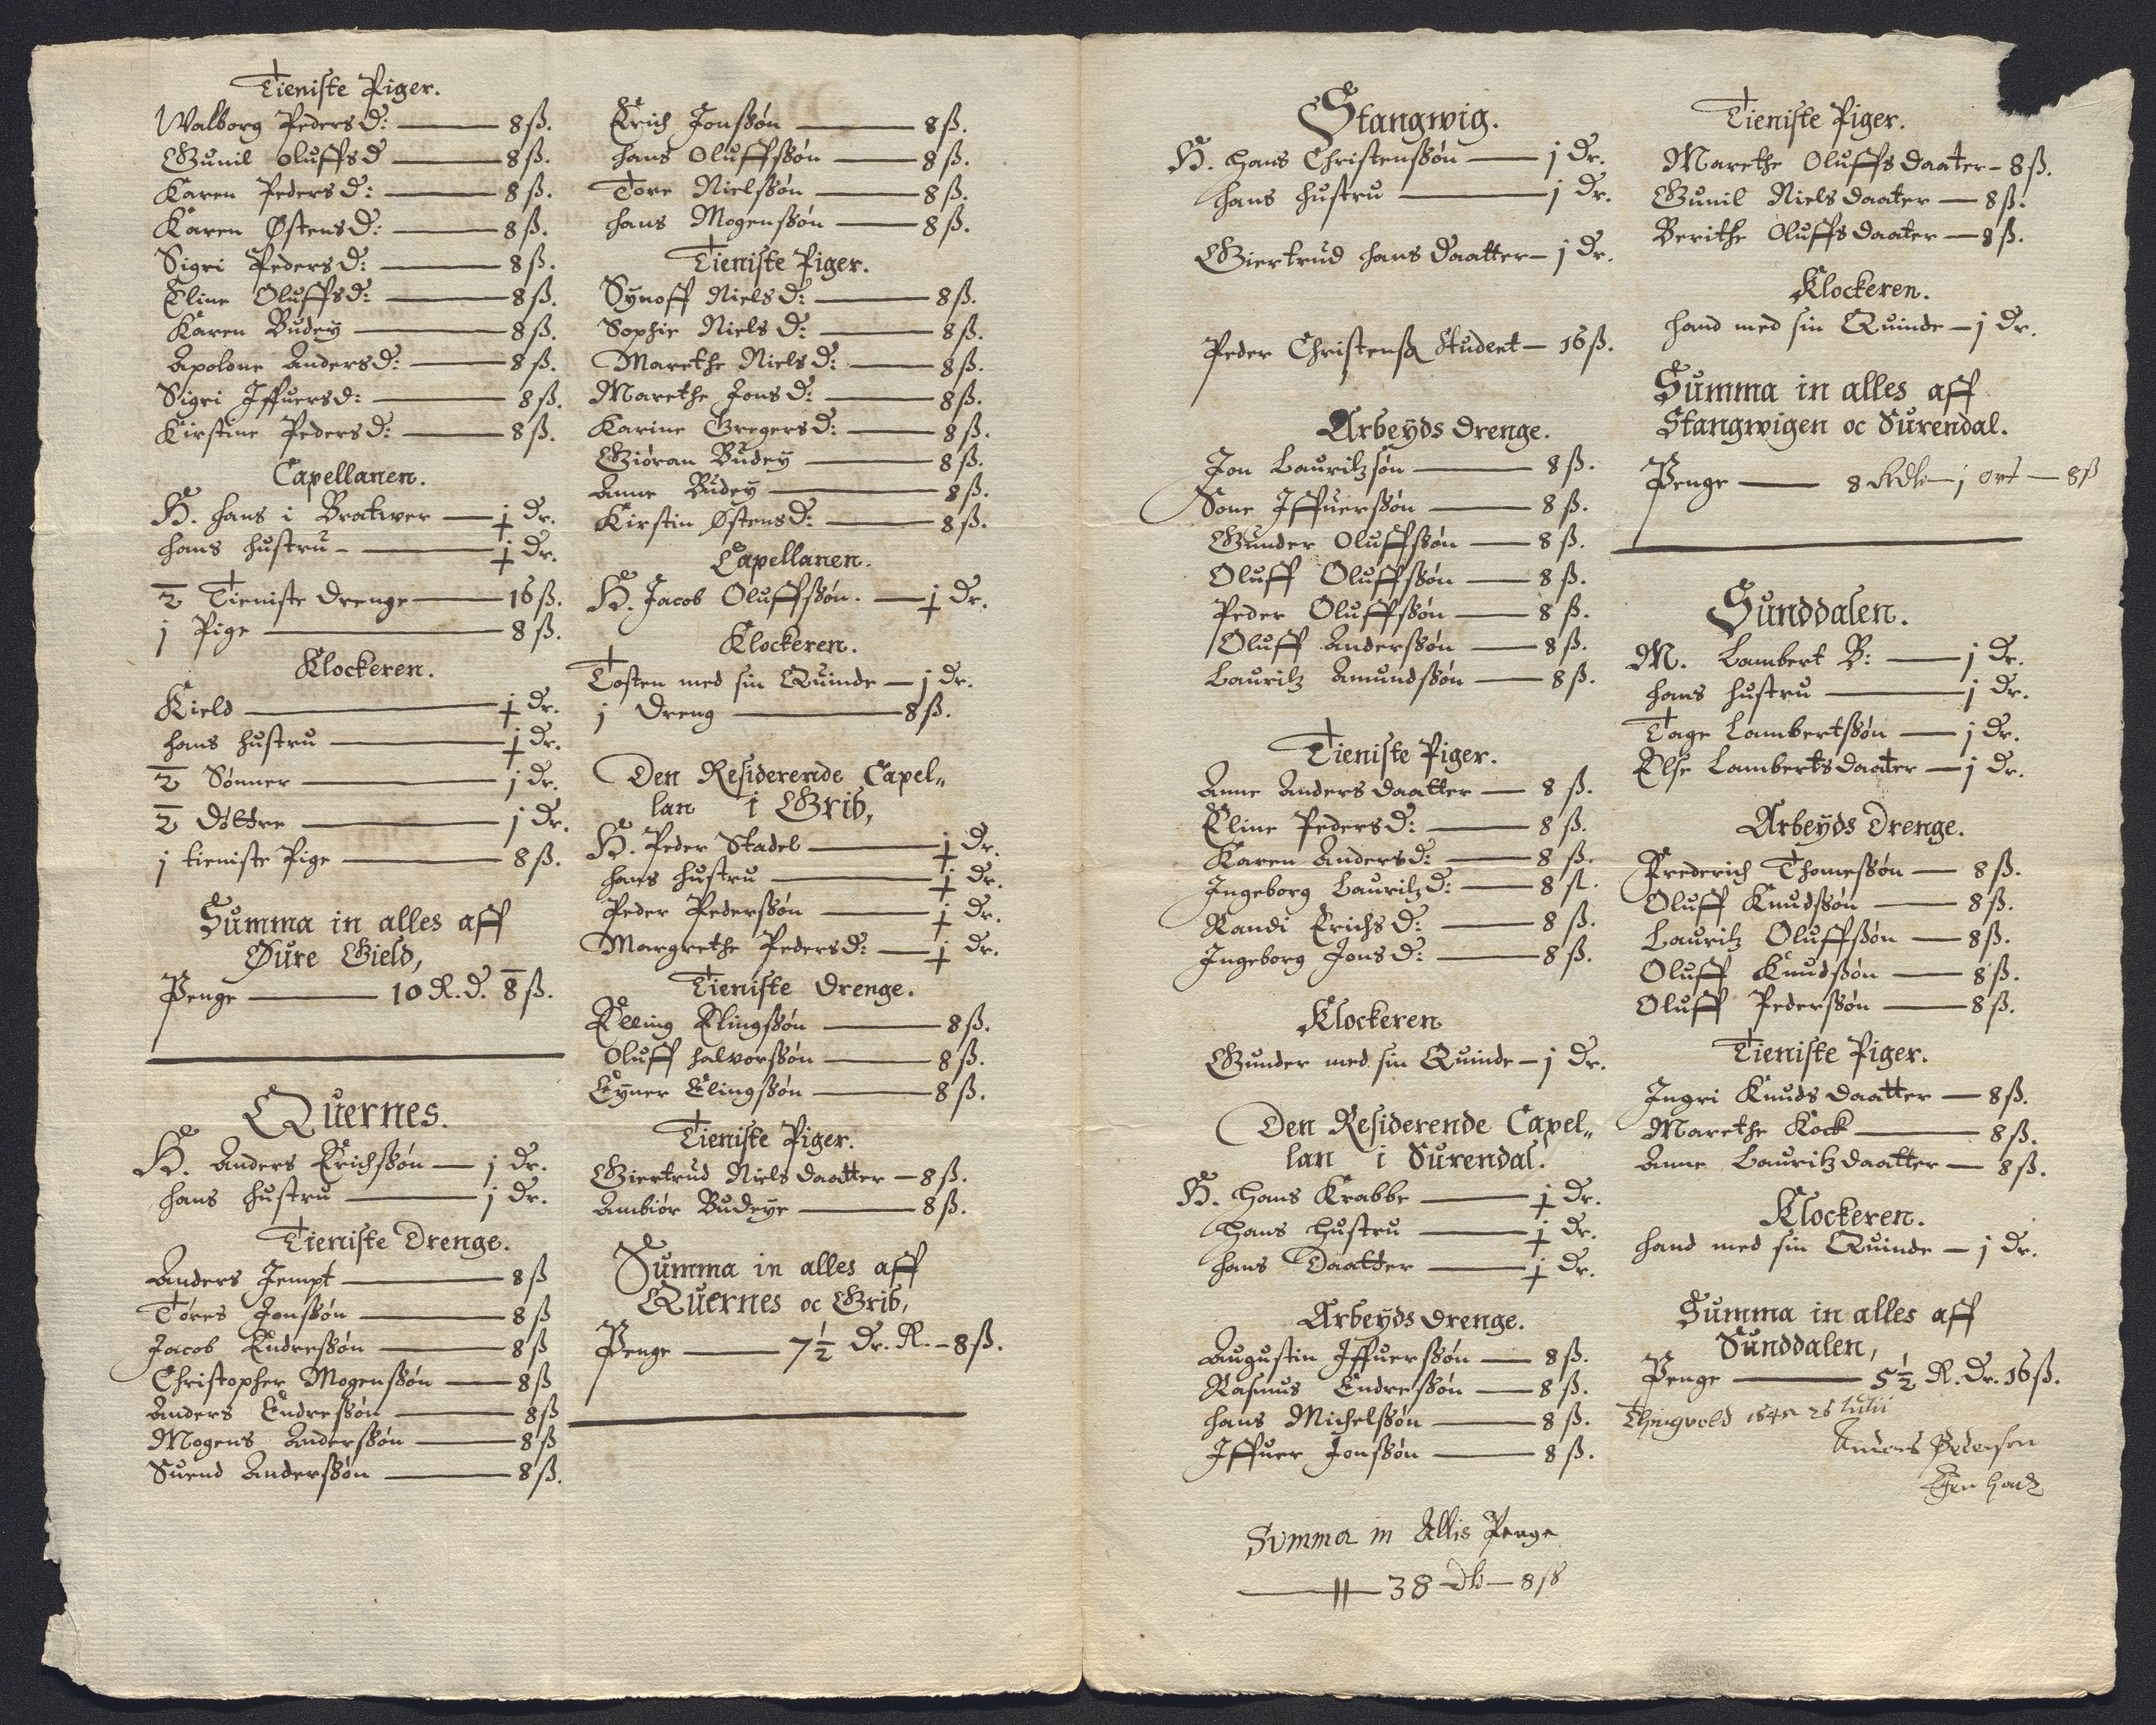 Tieniste Piger.
Walborg Peders D: — 8 ß.
Gunil oluffs D — 8 ß.
Karen Peders D: — 8 ß.
Karen Østens D: — 8 ß.
Sigri Peders D: — 8 ß.
Eline Oluffs D: — 8 ß.
Karen Budey — 8 ß.
Apolone Anders D: — 8 ß.
Sigri Iffuers D: — 8 ß.
Kirstine Peders D: — 8 ß.
Capellanen.
H. Hans i Bratwer — j Dr.
Hans Hustru — j Dr.
2 Tieniste Drenge — 16 ß.
j Pige — 8 ß.
Klockeren.
Kield — j Dr.
Hans Hustru — j Dr.
2 Sønner — j Dr.
2 Døttre — j Dr.
j tieniste Pige — 8 ß.
Summa in alles aff
Øure Gield,
Penge — 10 R.D. 8 ß.
Quernes.
H. Anders Erichssøn — j Dr.
Hans Hustru — j Dr.
Tieniste Drenge.
Anders Jempt — 8 ß
Tores Jonssøn — 8 ß
Jacob Endressøn — 8 ß
Christopher Mogenssøn — 8 ß
Anders Endressøn — 8 ß
Mogens Anderssøn — 8 ß
Suend Anderssøn — 8 ß.
Erich Jonssøn — 8 ß.
Hans Oluffssøn — 8 ß.
Tore Nielssøn — 8 ß.
Hans Mogenssøn — 8 ß.
Tieniste Piger.
Synoff Niels D: — 8 ß.
Sophie Niels D: — 8 ß.
Marethe Niels D: — 8 ß.
Marethe Jons D: — 8 ß.
Karine Gregers D: — 8 ß.
Giøran Budey — 8 ß.
Anne Budey — 8 ß.
Kirstin Østens D: — 8 ß.
Capellanen.
H. Jacob Oluffssøn. — j Dr.
Klockeren.
Tosten med sin Quinde — j Dr.
j Dreng — 8 ß.
Den Residerende Capel„
lan i Grib,
H. Peder Stadel — j Dr.
Hans Hustru — j Dr.
Peder Pederssøn — j Dr.
Margrethe Peders D: — j Dr.
Tieniste Drenge.
Elling Elingssøn — 8 ß.
Oluff Halvorssøn — 8 ß.
Eyner Elingssøn — 8 ß.
Tieniste Piger.
Giertrud Niels Daatter — 8 ß.
Ambiør Budeye — 8 ß.
Summa in alles aff
Quernes oc Grib,
Penge — 7½ Dr. R. — 8 ß.
Stangwig.
H. Hans Christenssøn — j Dr.
Hans Hustru — j Dr.
Giertrud Hans Daatter — j Dr.
Peder Christenss Student — 16 ß.
Arbeyds Drenge.
Jon Lauritzsøn — 8 ß.
Sone Iffuerssøn — 8 ß.
Gunder Oluffssøn — 8 ß.
Oluff Oluffssøn — 8 ß.
Peder Oluffssøn — 8 ß.
Oluff Anderssøn — 8 ß.
Lauritz Amundssøn — 8 ß.
Tieniste Piger.
Anne Anders Daatter — 8 ß.
Eline Peders D: — 8 ß.
Karen Anders D: — 8 ß.
Ingeborg Lauritz D: — 8 ß.
Randi Erichs D: — 8 ß.
Ingeborg Jons D: — 8 ß.
Klockeren
Gunder med sin Quinde — j Dr.
Den Residerende Capel„
lan i Surendal.
H. Hans Krabbe — j Dr.
Hans Hustru — j Dr.
Hans Daatter — j Dr.
Arbeyds Drenge.
Augustin Iffuerssøn — 8 ß.
Rasmus Endressøn — 8 ß.
Hans Michelssøn — 8 ß.
Iffuer Jonssøn — 8 ß.
Summa in Allis Penge
— 38 — 8 ß
Tieniste Piger.
Marethe Oluffs Daater — 8 ß.
Gunil Niels Daater — 8 ß.
Berithe Oluffs Daater — 8 ß.
Klockeren.
Hand med sin Quinde — j Dr.
Summa in alles aff
Stangwigen oc Surendal.
Penge — 8 Rdlr — j ort — 8 ß
Sunddalen.
M. Lambert B: — j Dr.
Hans Hustru — j Dr.
Tage Lambertssøn — j Dr.
Else Lamberts Daater — j Dr.
Arbeyds Drenge.
Frederich Thomessøn — 8 ß.
Oluff Knudssøn — 8 ß.
Lauritz Oluffssøn — 8 ß.
Oluff Knudssøn — 8 ß.
Oluff Pederssøn — 8 ß.
Tieniste Piger.
Ingri Knuds Daatter — 8 ß.
Marethe Kock — 8 ß.
Anne Lauritz Daatter — 8 ß.
Klockeren.
Hand med sin Quinde — j Dr.
Summa in alles aff
Sunddalen,
Penge — 5½ R. Dr. 16 ß.
Thingvold 25 Iulii
Anders Pederson
Egen Handt